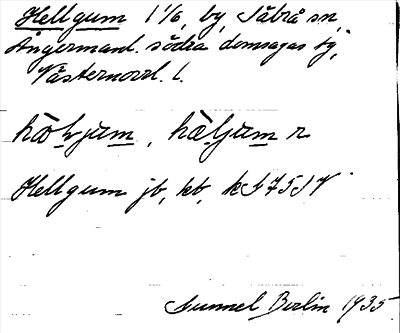 Hellgum 1 1/6, by, Säbrå sn
Ångermanl. södra domsagas tg,
Västernorrl. l.
häljum n
Hellgum jb, kb,
Gunnel Berlin 1935